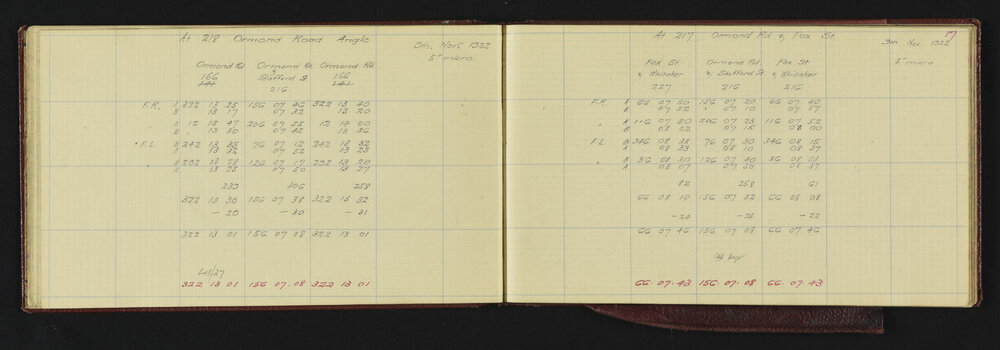 At 218 Ormond Road Angle
9th. Nov. 1922
5" micro.
Ormond Rd. Ormond Rd. Ormond Rd.
166 & 166
141 Stafford St. 141
216
F.R. 322 13 25 156 07 46 322 13 40
13 17 07 32 13 20
12 13 47 206 07 55 12 14 00
13 30 07 42 13 36
F.L. 242 13 35 76 07 12 242 13 32
13 32 07 52 13 23
292 13 28 126 07 17 292 13 20
13 25 07 50 13 27
239 306 258
322 13 30 156 07 38 322 13 32
- 29 - 30 - 31
322 13 01 156 07 08 322 13 01
322 13 01 156.07.08 322 13 01
At 217 Ormond Rd. & Fox St.
9th Nov. 1922
5" micro
Fox St. Ormond Rd. Fox St
& Whitaker & Stafford St & Whitaker
227 216 216
F.R. A 66 07 50 156 07 20 66 07 40
B 07 52 07 10 07 57
A 116 07 50 206 07 23 116 07 52
B 08 02 07 15 08 00
F.L. B 346 08 35 76 07 30 346 08 15
A 08 33 08 10 08 37
B 36 08 30 126 07 40 36 08 03
A 08 07 07 30 08 37
82 258 61
66 08 10 156 07 32 66 08 08
-24 -24 -22
66 07 46 156 07 08 66 07 46
66.07.43 156.07.08 66.07.43